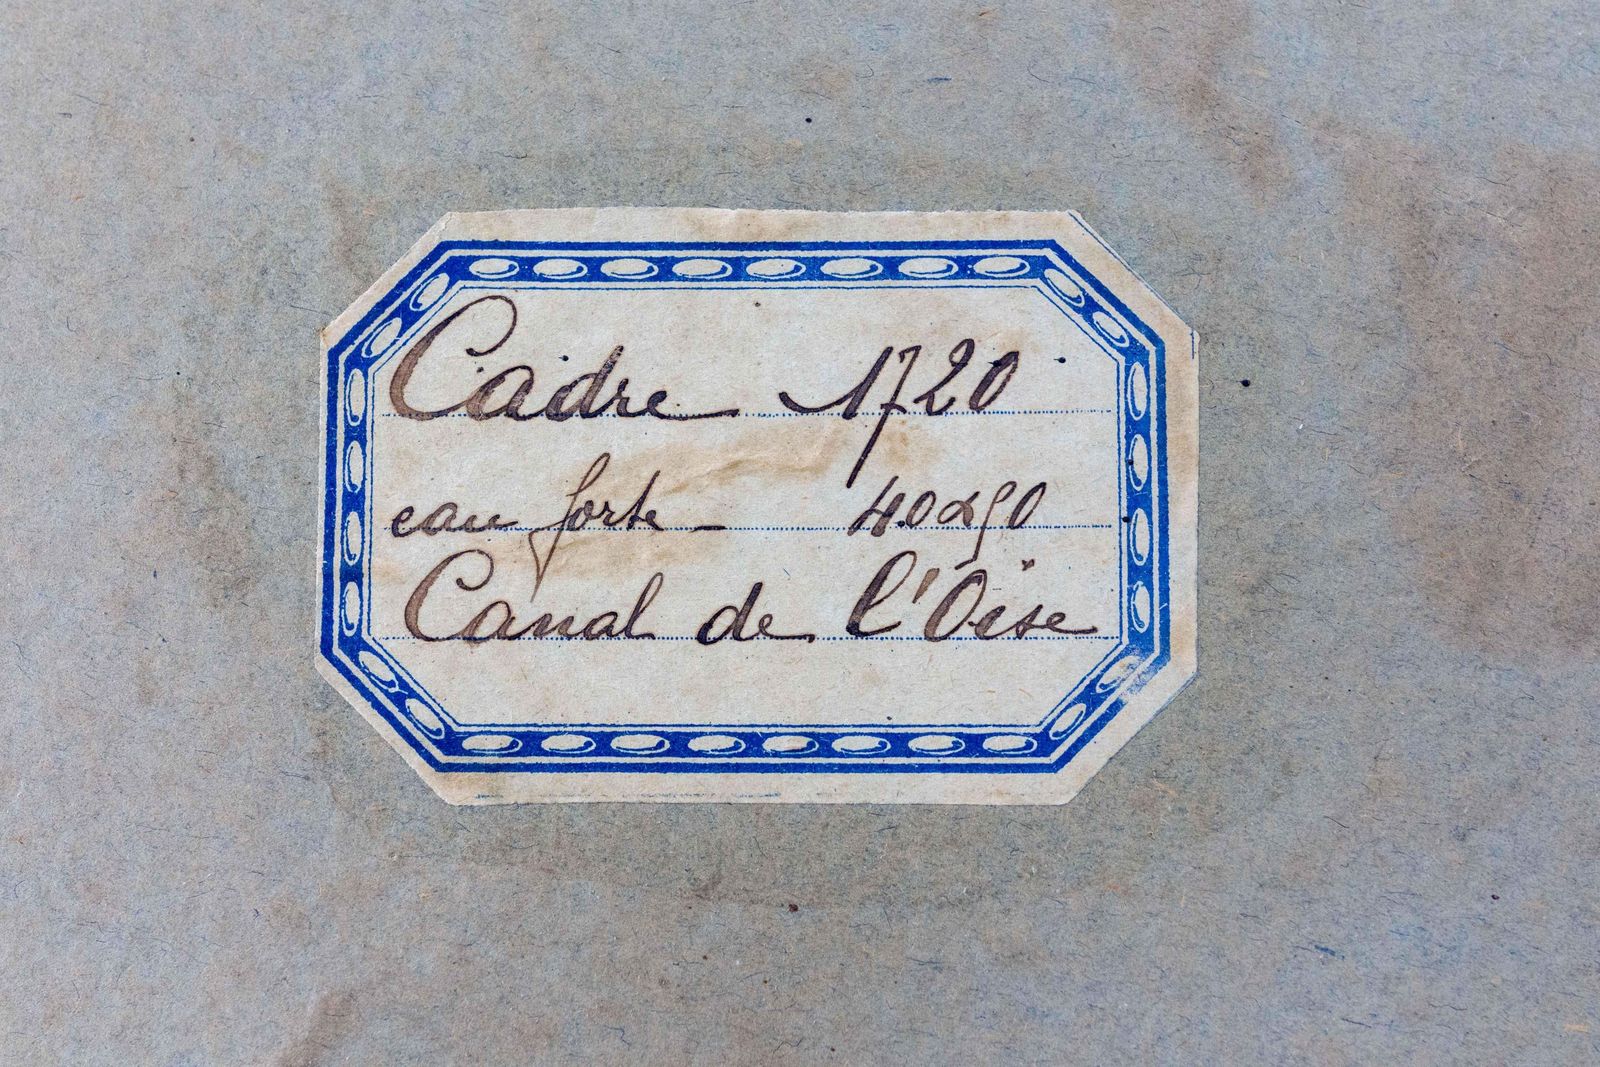 Cadre 1720
eau forte - 40x50
Canal de l'Oise